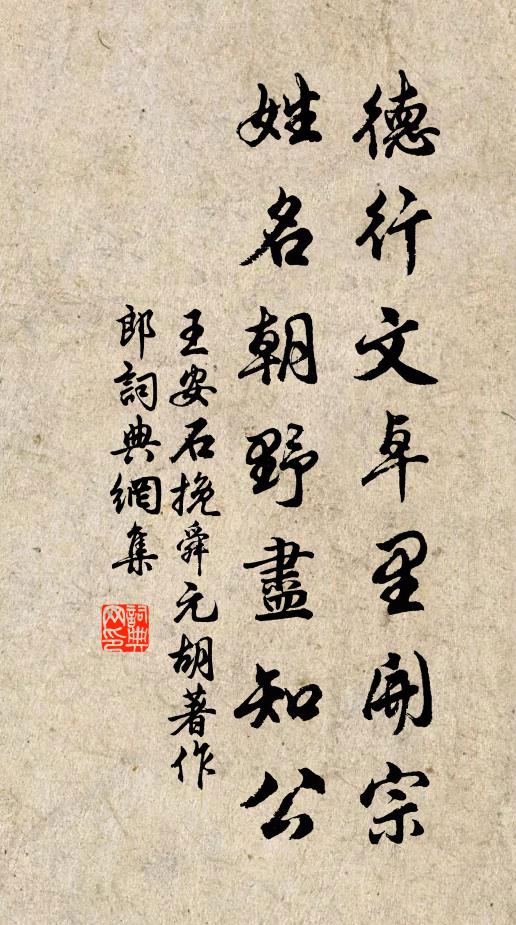 德行文卓里開宗
姓名朝野盡知公
王安石挽舜元胡著作
郎詞典網集
詞典
网印